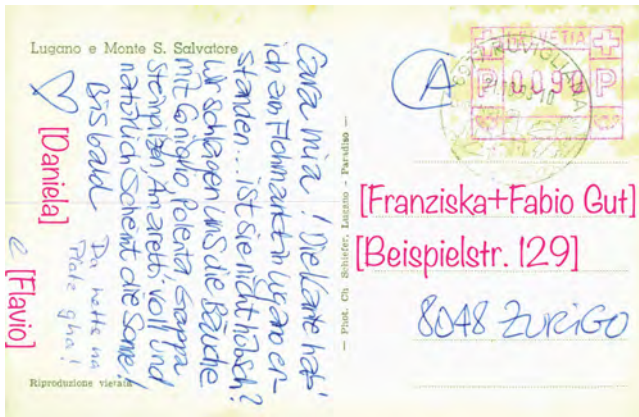 Lugano e Monte S. Salvatore
Cara mia! Die Karte hab'
ich am Flohmarkt in Lugano er-
standen... ist sie nicht hübsch?
Wir schlagen uns die Bäuche
mit Coniglio, Polenta, Grappa
Steinpilzen, Amaretti voll und
natürlich scheint die Sonne!
Bis bald
[Daniela]
e [Flavio]
Da hetts na
Platz gha!
Riproduzione vietata
— Phot. Ch. Schiefer, Lugano - Paradiso —
A
HELVETIA
P 0090 P
RUVIGLIANA
[Franziska+Fabio Gut]
[Beispielstr. 129]
8048 ZURIGO